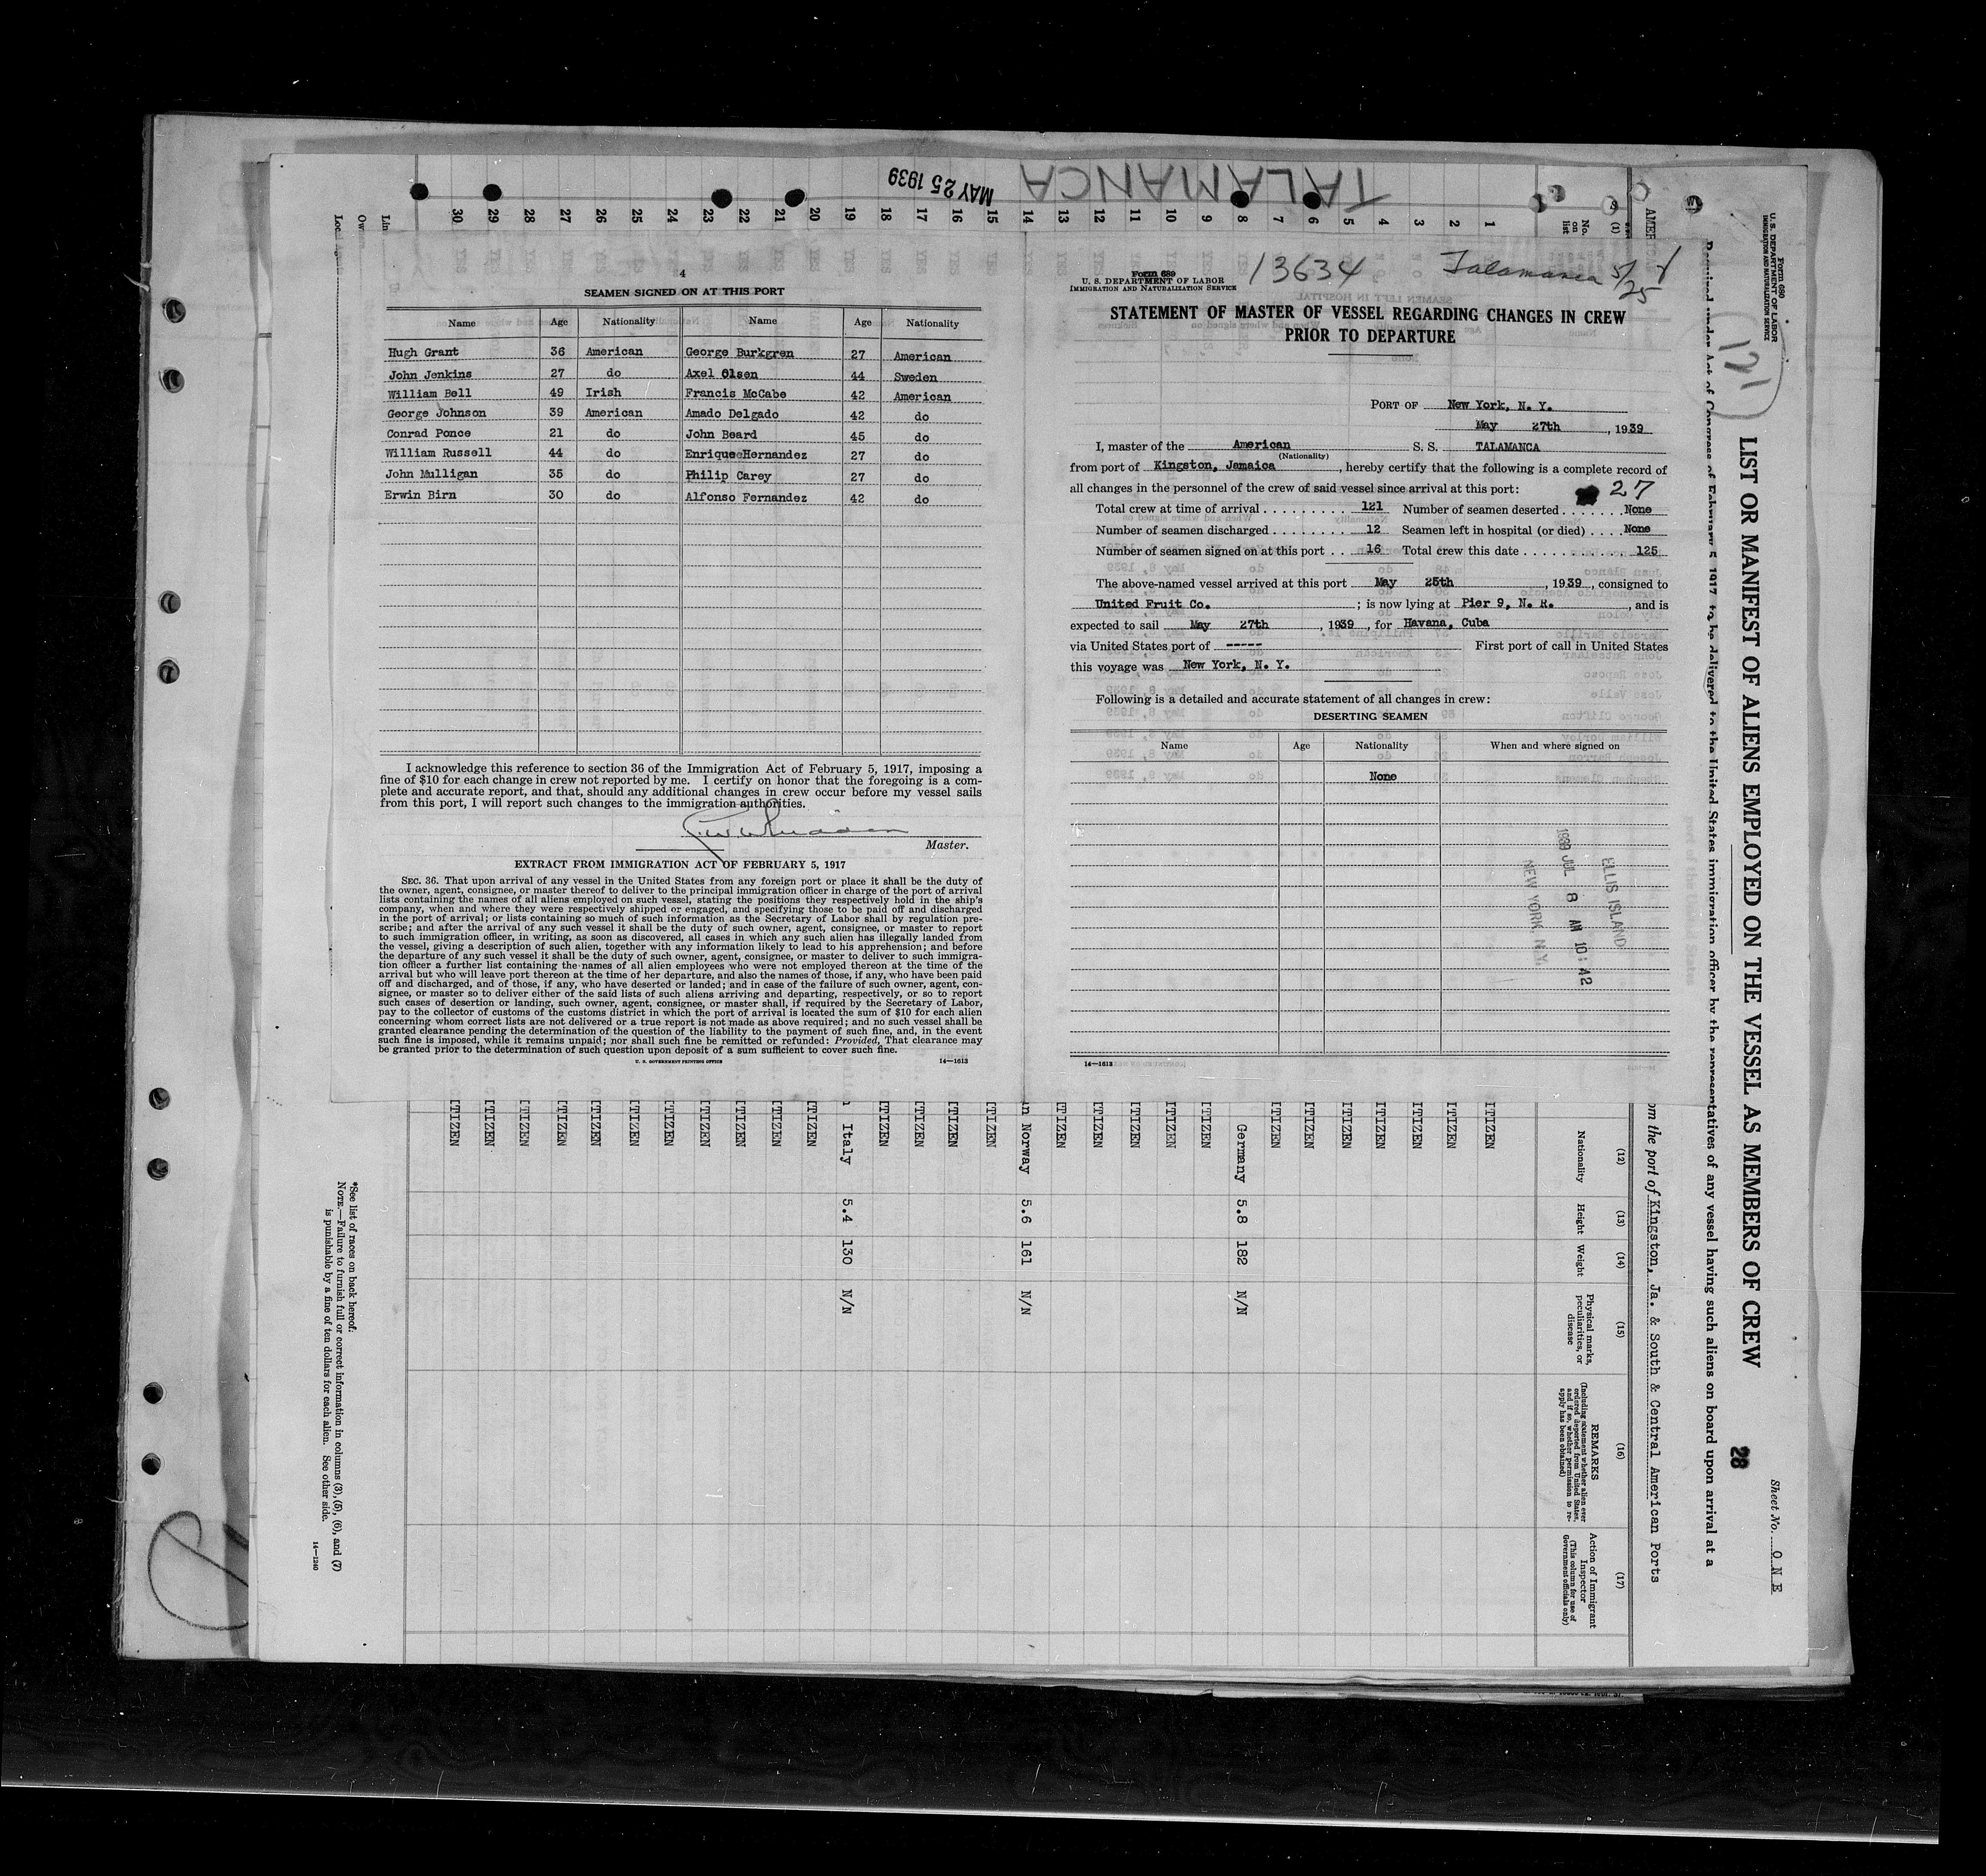 4
SEAMEN SIGNED ON AT THIS PORT
Name Age Nationality Name Age Nationality
Hugh Grant 36 American George Burkgren 27 American
John Jenkins 27 do Axel Olsen 44 Sweden
William Bell 49 Irish Francis McCabe 42 American
George Johnson 39 American Amado Delgado 42 do
Conrad Ponce 21 do John Beard 45 do
William Russell 44 do Enrique Hernandez 27 do
John Mulligan 35 do Philip Carey 27 do
Erwin Birn 30 do Alfonso Fernandez 42 do
I acknowledge this reference to section 36 of the Immigration Act of February 5, 1917, imposing a
fine of $10 for each change in crew not reported by me. I certify on honor that the foregoing is a com-
plete and accurate report, and that, should any additional changes in crew occur before my vessel sails
from this port, I will report such changes to the immigration authorities.
Master.
EXTRACT FROM IMMIGRATION ACT OF FEBRUARY 5, 1917
SEC. 36. That upon arrival of any vessel in the United States from any foreign port or place it shall be the duty of
the owner, agent, consignee, or master thereof to deliver to the principal immigration officer in charge of the port of arrival
lists containing the names of all aliens employed on such vessel, stating the positions they respectively hold in the ship's
company, when and where they were respectively shipped or engaged, and specifying those to be paid off and discharged
in the port of arrival; or lists containing so much of such information as the Secretary of Labor shall by regulation pre-
scribe; and after the arrival of any such vessel it shall be the duty of such owner, agent, consignee, or master to report
to such immigration officer, in writing, as soon as discovered, all cases in which any such alien has illegally landed from
the vessel, giving a description of such alien, together with any information likely to lead to his apprehension; and before
the departure of any such vessel it shall be the duty of such owner, agent, consignee, or master to deliver to such immigra-
tion officer a further list containing the names of all alien employees who were not employed thereon at the time of the
arrival but who will leave port thereon at the time of her departure, and also the names of those, if any, who have been paid
off and discharged, and of those, if any, who have deserted or landed; and in case of the failure of such owner, agent, con-
signee, or master so to deliver either of the said lists of such aliens arriving and departing, respectively, or so to report
such cases of desertion or landing, such owner, agent, consignee, or master shall, if required by the Secretary of Labor,
pay to the collector of customs of the customs district in which the port of arrival is located the sum of $10 for each alien
concerning whom correct lists are not delivered or a true report is not made as above required; and no such vessel shall be
granted clearance pending the determination of the question of the liability to the payment of such fine, and, in the event
such fine is imposed, while it remains unpaid; nor shall such fine be remitted or refunded: Provided, That clearance may
be granted prior to the determination of such question upon deposit of a sum sufficient to cover such fine.
U. S. GOVERNMENT PRINTING OFFICE 14—1613
Form 689
U. S. DEPARTMENT OF LABOR
IMMIGRATION AND NATURALIZATION SERVICE
13634 Talamanca 5/25
STATEMENT OF MASTER OF VESSEL REGARDING CHANGES IN CREW
PRIOR TO DEPARTURE
PORT OF New York, N. Y.
May 27th, 1939
I, master of the American S. S. TALAMANCA
(Nationality)
from port of Kingston, Jamaica, hereby certify that the following is a complete record of
all changes in the personnel of the crew of said vessel since arrival at this port:
27
Total crew at time of arrival 121 Number of seamen deserted None
Number of seamen discharged 12 Seamen left in hospital (or died) None
Number of seamen signed on at this port 16 Total crew this date 125
The above-named vessel arrived at this port May 25th, 1939, consigned to
United Fruit Co. ; is now lying at Pier 9, N. R., and is
expected to sail May 27th, 1939, for Havana, Cuba
via United States port of ----- First port of call in United States
this voyage was New York, N. Y.
Following is a detailed and accurate statement of all changes in crew:
DESERTING SEAMEN
Name Age Nationality When and where signed on
None
ELLIS ISLAND
1939 JUL 8 AM 10:42
NEW YORK N.Y.
14—1613
TALAMANCA
MAY 25 1939
Form 680
U. S. DEPARTMENT OF LABOR
IMMIGRATION AND NATURALIZATION SERVICE
121
Sheet No. ONE
LIST OR MANIFEST OF ALIENS EMPLOYED ON THE VESSEL AS MEMBERS OF CREW
28
Required under Act of Congress of February 5, 1917, to be delivered to the United States immigration officer by the representatives of any vessel having such aliens on board upon arrival at a
AMER
om the port of Kingston, Ja. & South & Central American Ports
(1) (12) (13) (14) (15) (16) (17)
No. on list
Nationality
Height
Weight
Physical marks, peculiarities, or disease
REMARKS
(Including statement whether alien ever ordered deported from United States, and if so, whether permission to re-apply has been obtained)
Action of Immigrant Inspector
(This column for use of Government officials only)
1 ITIZEN
2 ITIZEN
3 ITIZEN
4 ITIZEN
5 ITIZEN
6 ITIZEN
7 ITIZEN
8 Germany 5.8 182 N/N
9 ITIZEN
10 ITIZEN
11 ITIZEN
12 ITIZEN
13 ITIZEN
14 n Norway 5.6 161 N/N
15 ITIZEN
16 ITIZEN
17 ITIZEN
18 ITIZEN
19 n Italy 5.4 130 N/N
20 ITIZEN
21 ITIZEN
22 ITIZEN
23 ITIZEN
24 ITIZEN
25 ITIZEN
26 ITIZEN
27 ITIZEN
28 ITIZEN
29 ITIZEN
30 ITIZEN
Lin
Own
Local Agents
*See list of races on back hereof.
NOTE.—Failure to furnish full or correct information in columns (3), (5), (6), and (7)
is punishable by a fine of ten dollars for each alien. See other side.
14—1240